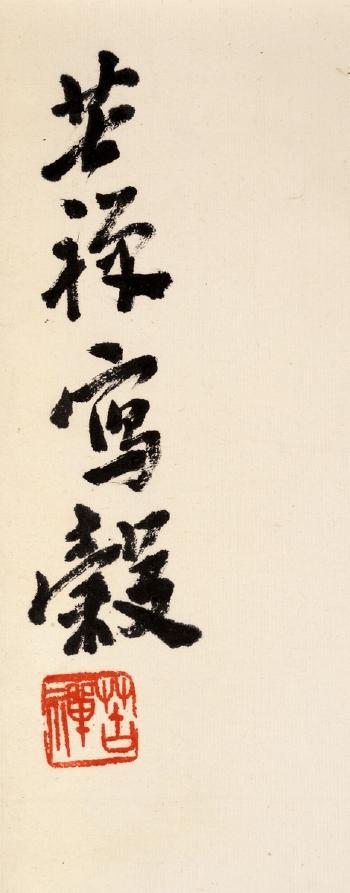 苦禅寫穀
苦禪